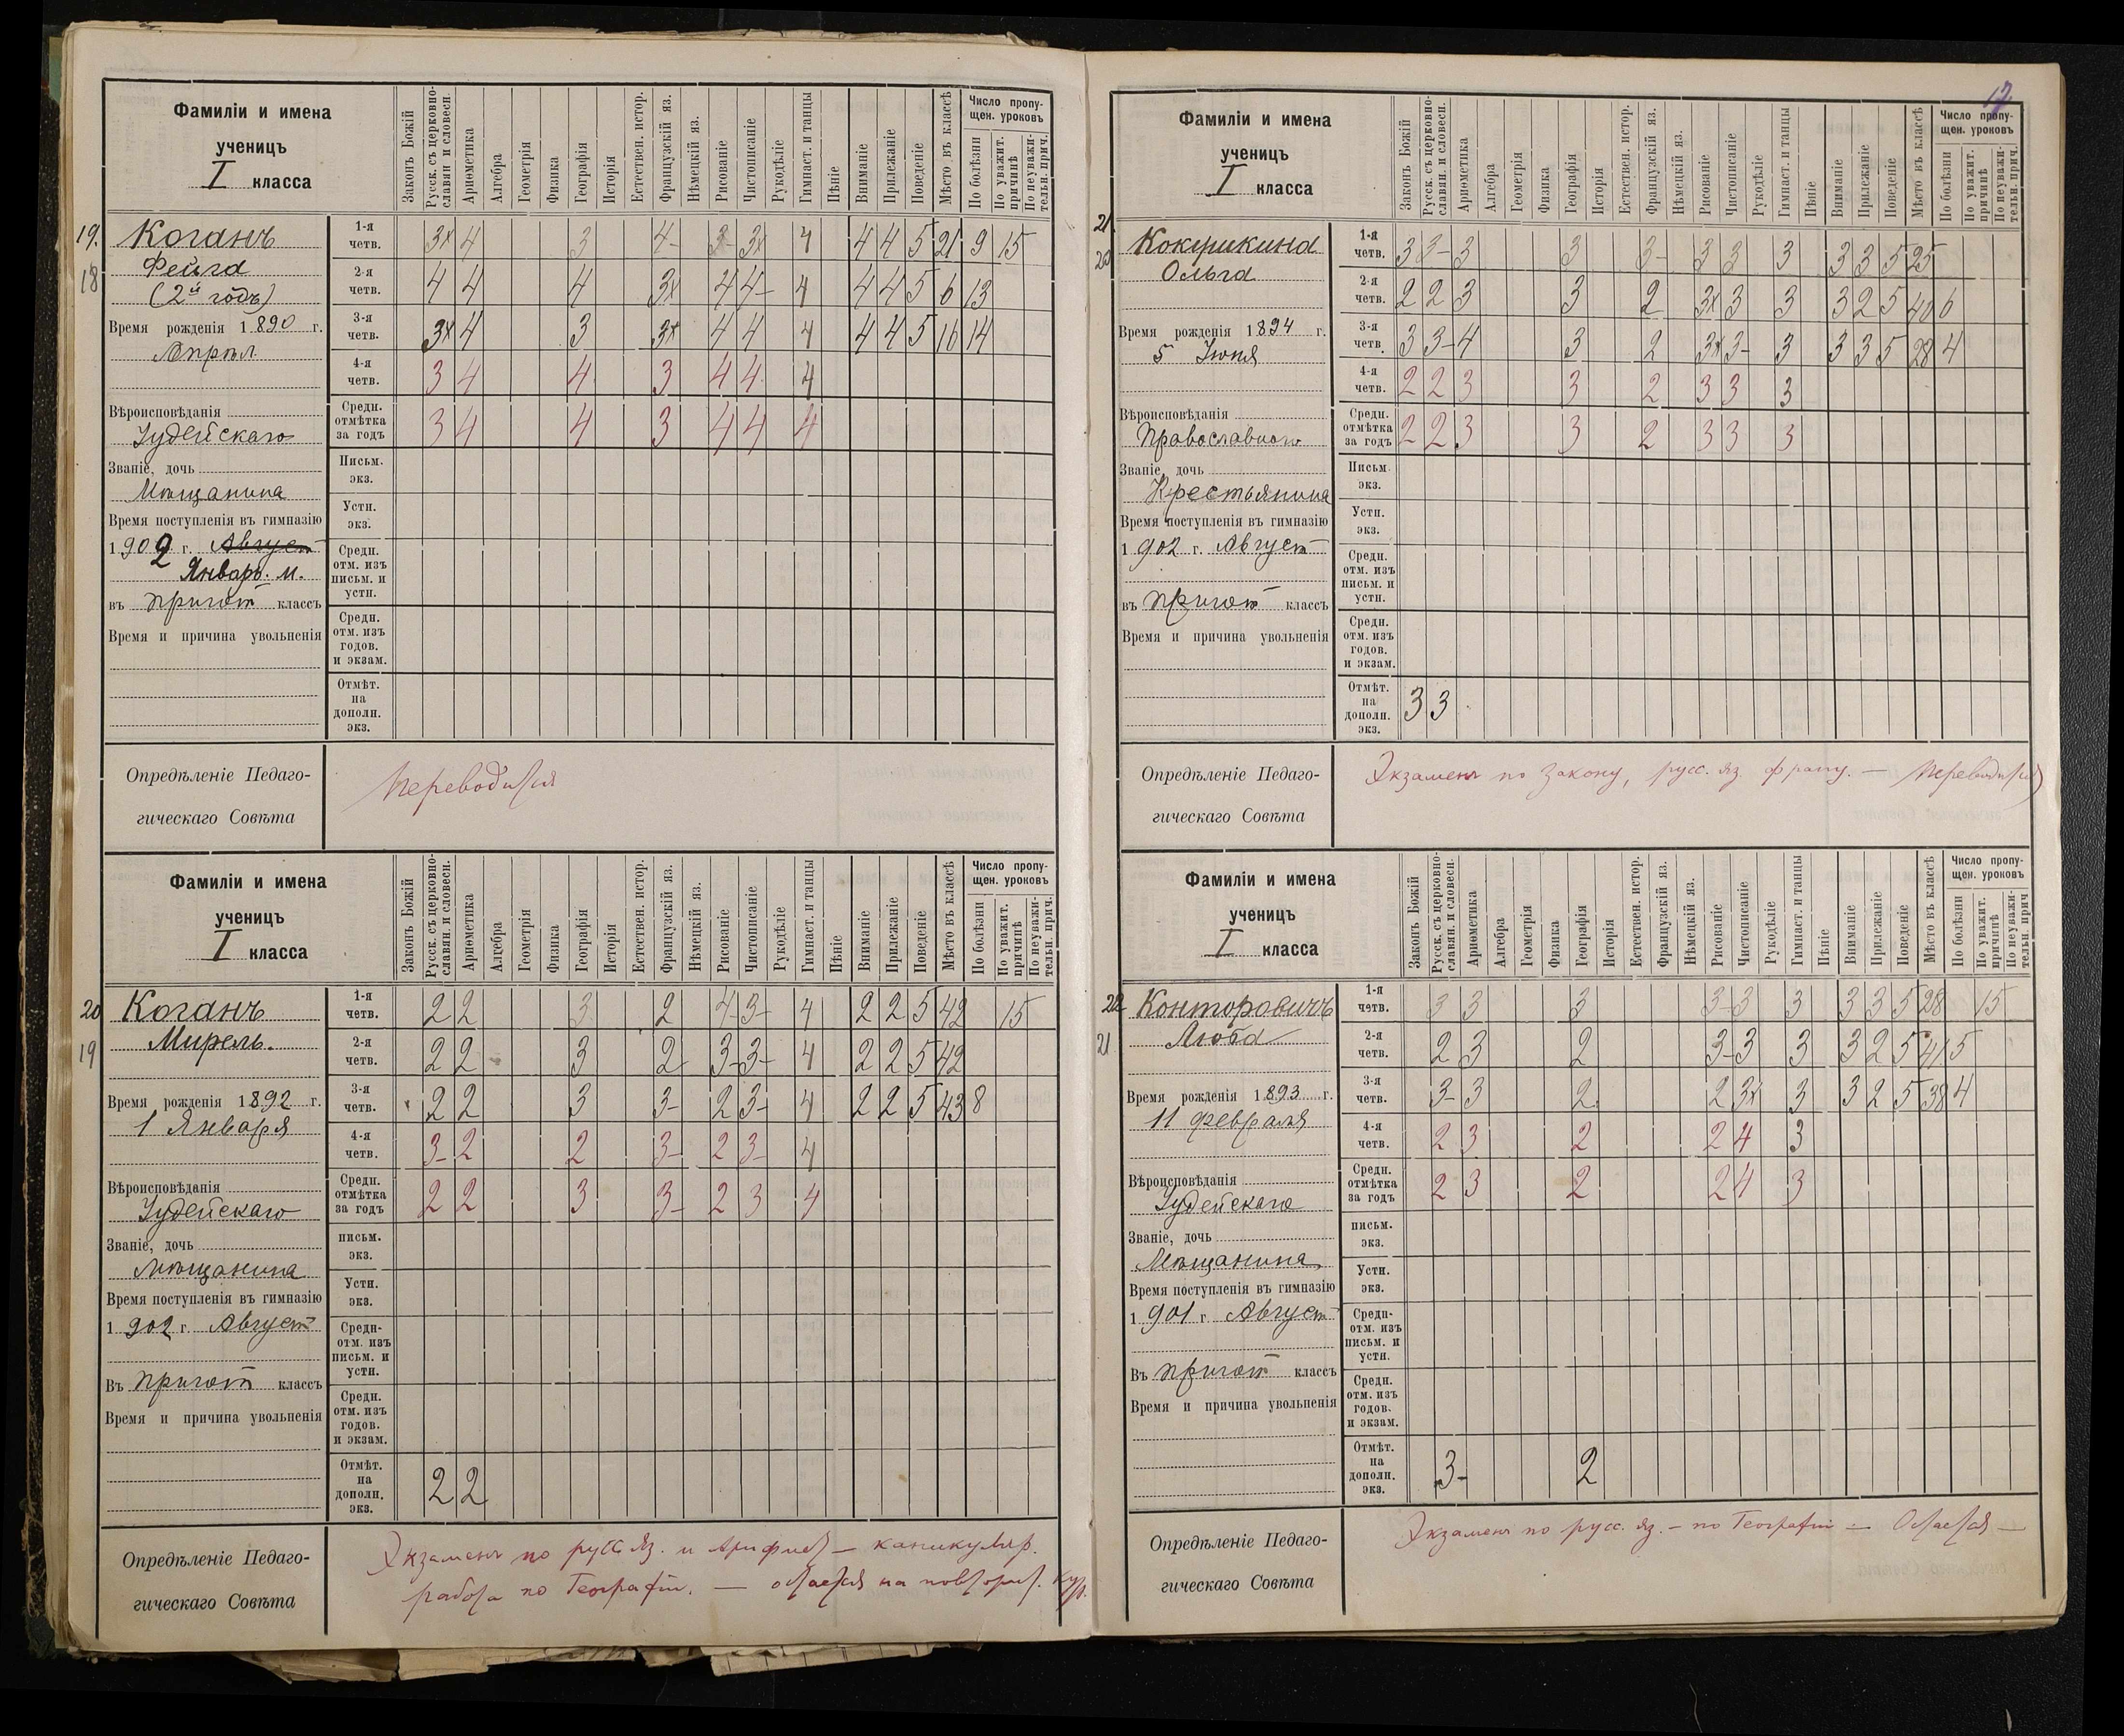 17
Фамиліи и имена
ученицъ
I класса
Законъ Божій
Русск. съ церковно-славян. и словесн.
Ариѳметика
Алгебра
Геометрія
Физика
Географія
Исторія
Естествен. истор.
Французскій яз.
Нѣмецкій яз.
Рисованіе
Чистописаніе
Рукодѣліе
Гимнаст. и танцы
Пѣніе
Вниманіе
Прилежаніе
Поведеніе
Мѣсто въ классѣ
Число пропущен. уроковъ
По болѣзни
По уважит. причинѣ
По неуважительн. прич.
19. Коганъ
18 Фейга
(2й годъ)
Время рожденія 1890 г.
Апрѣл
Вѣроисповѣданія
Іудейскаго
Званіе, дочь
Мѣщанина
Время поступленія въ гимназію
1902 г. Август
Январь. м.
въ пригот классъ
Время и причина увольненія
1-я четв. 3х 4 3 4- 3- 3х 4 4 4 5 21 9 15
2-я четв. 4 4 4 3х 4 4- 4 4 4 5 6 13
3-я четв. 3х 4 3 3х 4 4 4 4 4 5 16 14
4-я четв. 3 4 4 3 4 4 4
Средн. отмѣтка за годъ 3 4 4 3 4 4 4
Письм. экз.
Устн. экз.
Средн. отм. изъ письм. и устн.
Средн. отм. изъ годов. и экзам.
Отмѣт. на дополн. экз.
Опредѣленіе Педаго-
гическаго Совѣта
Переводится
Фамиліи и имена
ученицъ
I класса
Законъ Божій
Русск. съ церковно-славян. и словесн.
Ариѳметика
Алгебра
Геометрія
Физика
Географія
Исторія
Естествен. истор.
Французскій яз.
Нѣмецкій яз.
Рисованіе
Чистописаніе
Рукодѣліе
Гимнаст. и танцы
Пѣніе
Вниманіе
Прилежаніе
Поведеніе
Мѣсто въ классѣ
Число пропущен. уроковъ
По болѣзни
По уважит. причинѣ
По неуважительн. прич.
20 Коганъ
19 Мирель.
Время рожденія 1892 г.
1 Января
Вѣроисповѣданія
Іудейскаго
Званіе, дочь
Мѣщанина
Время поступленія въ гимназію
1902 г Август
Въ пригот классъ
Время и причина увольненія
1-я четв. 2 2 3 2 4- 3- 4 2 2 5 42 15
2-я четв. 2 2 3 2 3- 3- 4 2 2 5 42
3-я четв. 2 2 3 3- 2 3- 4 2 2 5 43 8
4-я четв. 3- 2 2 3- 2 3- 4
Средн. отмѣтка за годъ 2 2 3 3- 2 3 4
письм. экз.
Устн. экз.
Средн- отм. изъ письм. и устн.
Средн. отм. изъ годов. и экзам.
Отмѣт. на дополн. экз. 2 2
Опредѣленіе Педаго-
гическаго Совѣта
Экзаменъ по русс яз. и Арифмет – каникуляр.
работа по Географіи. — остается на повторит. кур.
Фамиліи и имена
ученицъ
I класса
Законъ Божій
Русск. съ церковно-славян. и словесн.
Ариѳметика
Алгебра
Геометрія
Физика
Географія
Исторія
Естествен. истор.
Французскій яз.
Нѣмецкій яз.
Рисованіе
Чистописаніе
Рукодѣліе
Гимнаст. и танцы
Пѣніе
Вниманіе
Прилежаніе
Поведеніе
Мѣсто въ классѣ
Число пропущен. уроковъ
По болѣзни
По уважит. причинѣ
По неуважительн. прич.
21. Кокушкина
20 Ольга
Время рожденія 1894 г.
5 Іюня
Вѣроисповѣданія
Православнаго
Званіе, дочь
Крестьянина
Время поступленія въ гимназію
1902 г. Август
въ пригот классъ
Время и причина увольненія
1-я четв. 3 3- 3 3 3- 3 3 3 3 3 5 25
2-я четв. 2 2 3 3 2 3х 3 3 3 2 5 40 6
3-я четв. 3 3- 4 3 2 3х 3- 3 3 3 5 28 4
4-я четв. 2 2 3 3 2 3 3 3
Средн. отмѣтка за годъ 2 2 3 3 2 3 3 3
Письм. экз.
Устн. экз.
Средн. отм. изъ письм. и устн.
Средн. отм. изъ годов. и экзам.
Отмѣт. на дополн. экз. 3 3
Опредѣленіе Педаго-
гическаго Совѣта
Экзаменъ по Закону, русс. яз франц. — Переводится
Фамиліи и имена
ученицъ
I класса
Законъ Божій
Русск. съ церковно-славян. и словесн.
Ариѳметика
Алгебра
Геометрія
Физика
Географія
Исторія
Естествен. истор.
Французскій яз.
Нѣмецкій яз.
Рисованіе
Чистописаніе
Рукодѣліе
Гимнаст. и танцы
Пѣніе
Вниманіе
Прилежаніе
Поведеніе
Мѣсто въ классѣ
Число пропущен. уроковъ
По болѣзни
По уважит. причинѣ
По неуважительн. прич
22 Конторовичъ
21 Люба
Время рожденія 1893 г.
11 Февраля
Вѣроисповѣданія
Іудейскаго
Званіе, дочь
Мѣщанина
Время поступленія въ гимназію
1901 г Август
Въ пригот классъ
Время и причина увольненія
1-я четв. 3 3 3 3- 3 3 3 3 5 28 15
2-я четв. 2 3 2 3- 3 3 3 2 5 41 5
3-я четв. 3- 3 2 2 3х 3 3 2 5 38 4
4-я четв. 2 3 2 2 4 3
Средн. отмѣтка за годъ 2 3 2 2 4 3
письм. экз.
Устн. экз.
Средн- отм. изъ письм. и устн.
Средн. отм. изъ годов. и экзам.
Отмѣт. на дополн. экз. 3- 2
Опредѣленіе Педаго-
гическаго Совѣта
Экзаменъ по русс. яз. – по Географіи — Остается —